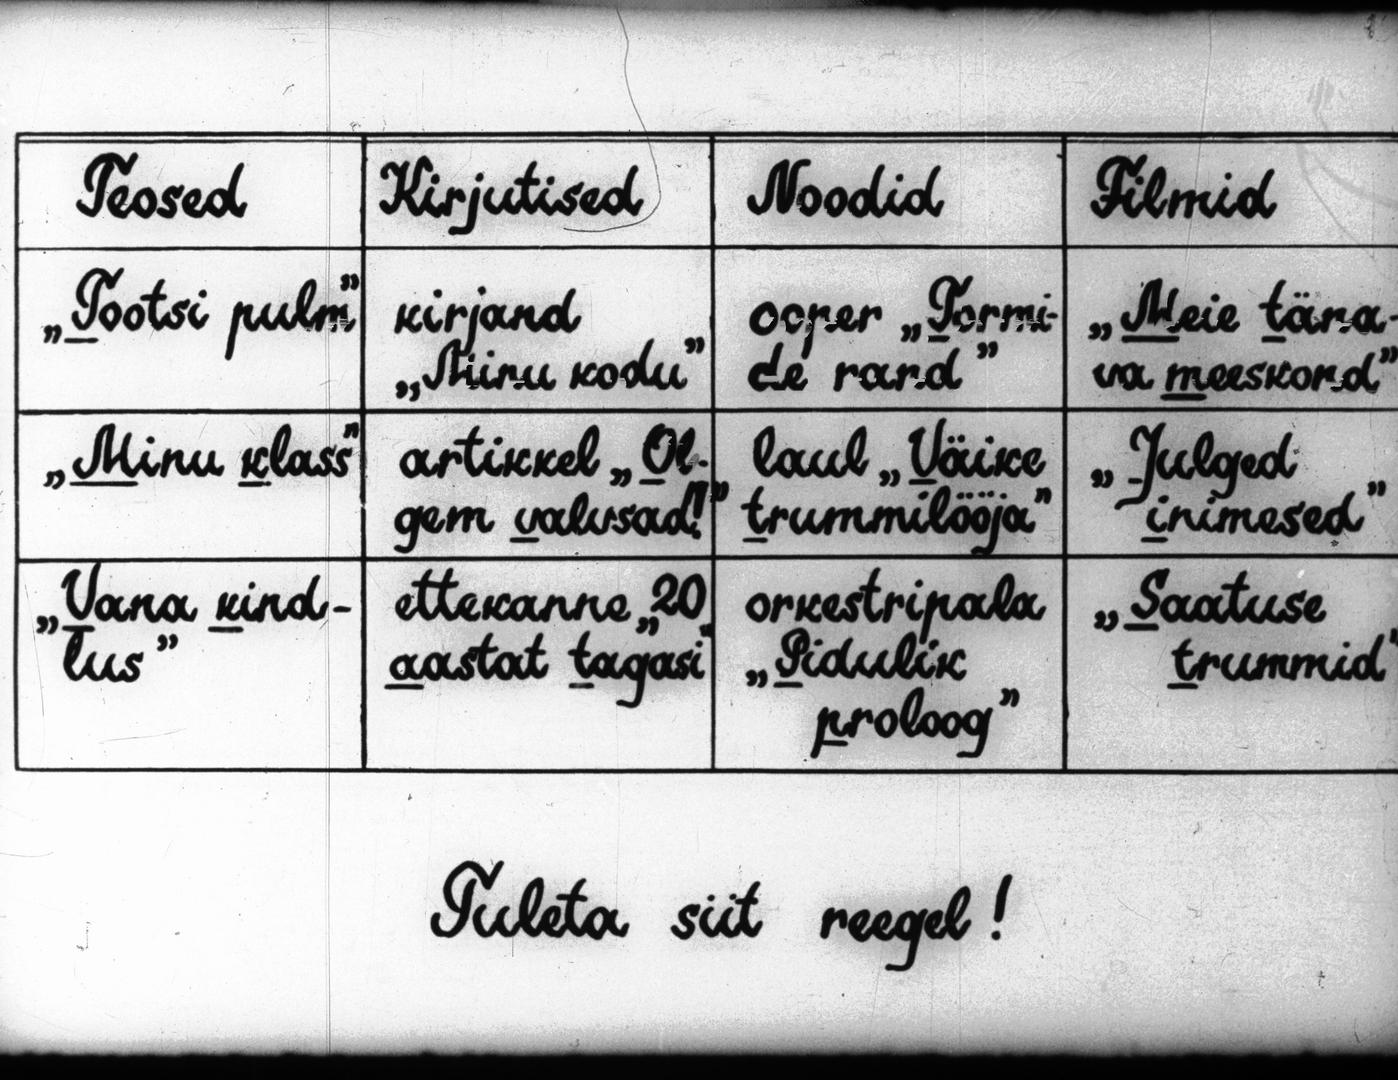 Teosed
Kirjutised
Noodid
Filmid
„Tootsi pulm”
kirjand
„Minu kodu”
ooper „Tormi-
de rand”
„Meie täna-
va meeskond”
„Minu klass”
artikkel „Ol-
gem valvsad!”
laul „Väike
trummilööja”
„Julged
inimesed”
„Vana kind-
lus”
ettekanne „20
aastat tagasi”
orkestripala
„Pidulik
proloog”
„Saatuse
trummid”
Tuleta siit reegel!